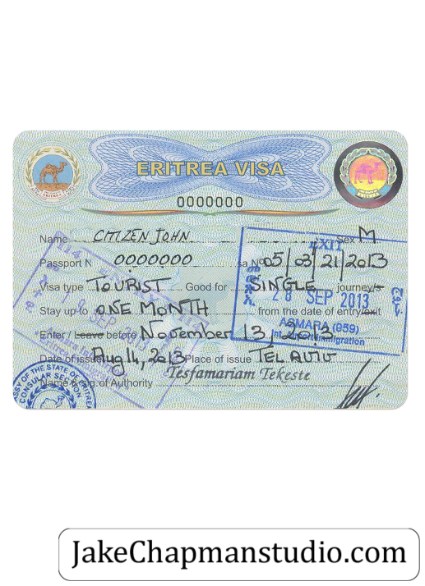 ERITREA VISA
0000000
Name CITIZEN JOHN Sex M
Passport N 0000000 sa No 05/03/21/2013
Visa type TOURIST Good for SINGLE journey/s
Stay up to ONE MONTH from the date of entry/exit
Enter / Leave before November 13, 2013
Date of issue Aug 14, 2013 Place of issue TEL AVIV
Name & sign. of Authority Tesfamariam Tekeste
EXIT
28 SEP 2013
ASMARA (059)
Immigration
SSY OF THE STATE OF ERITREA
CONSULAR SECTION
JakeChapmanstudio.com